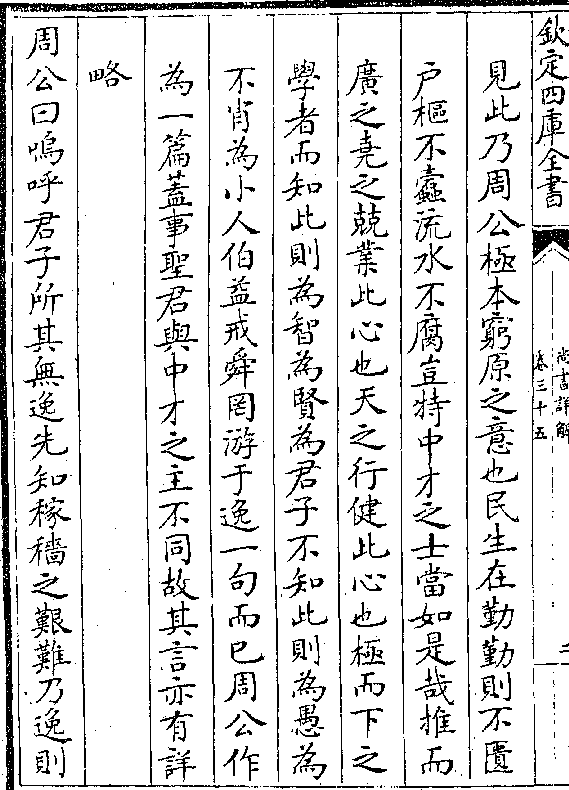 欽定四庫全書
尚書詳解
卷三十五
二
見此乃周公極本窮原之意也民生在勤勤則不匱
户樞不蠹流水不腐豈特中才之士當如是哉推而
廣之堯之兢業此心也天之行健此心也極而下之
學者而知此則為智為賢為君子不知此則為愚為
不肖為小人伯益戒舜罔游于逸一句而已周公作
為一篇蓋事聖君與中才之主不同故其言亦有詳
略
周公曰嗚呼君子所其無逸先知稼穡之艱難乃逸則